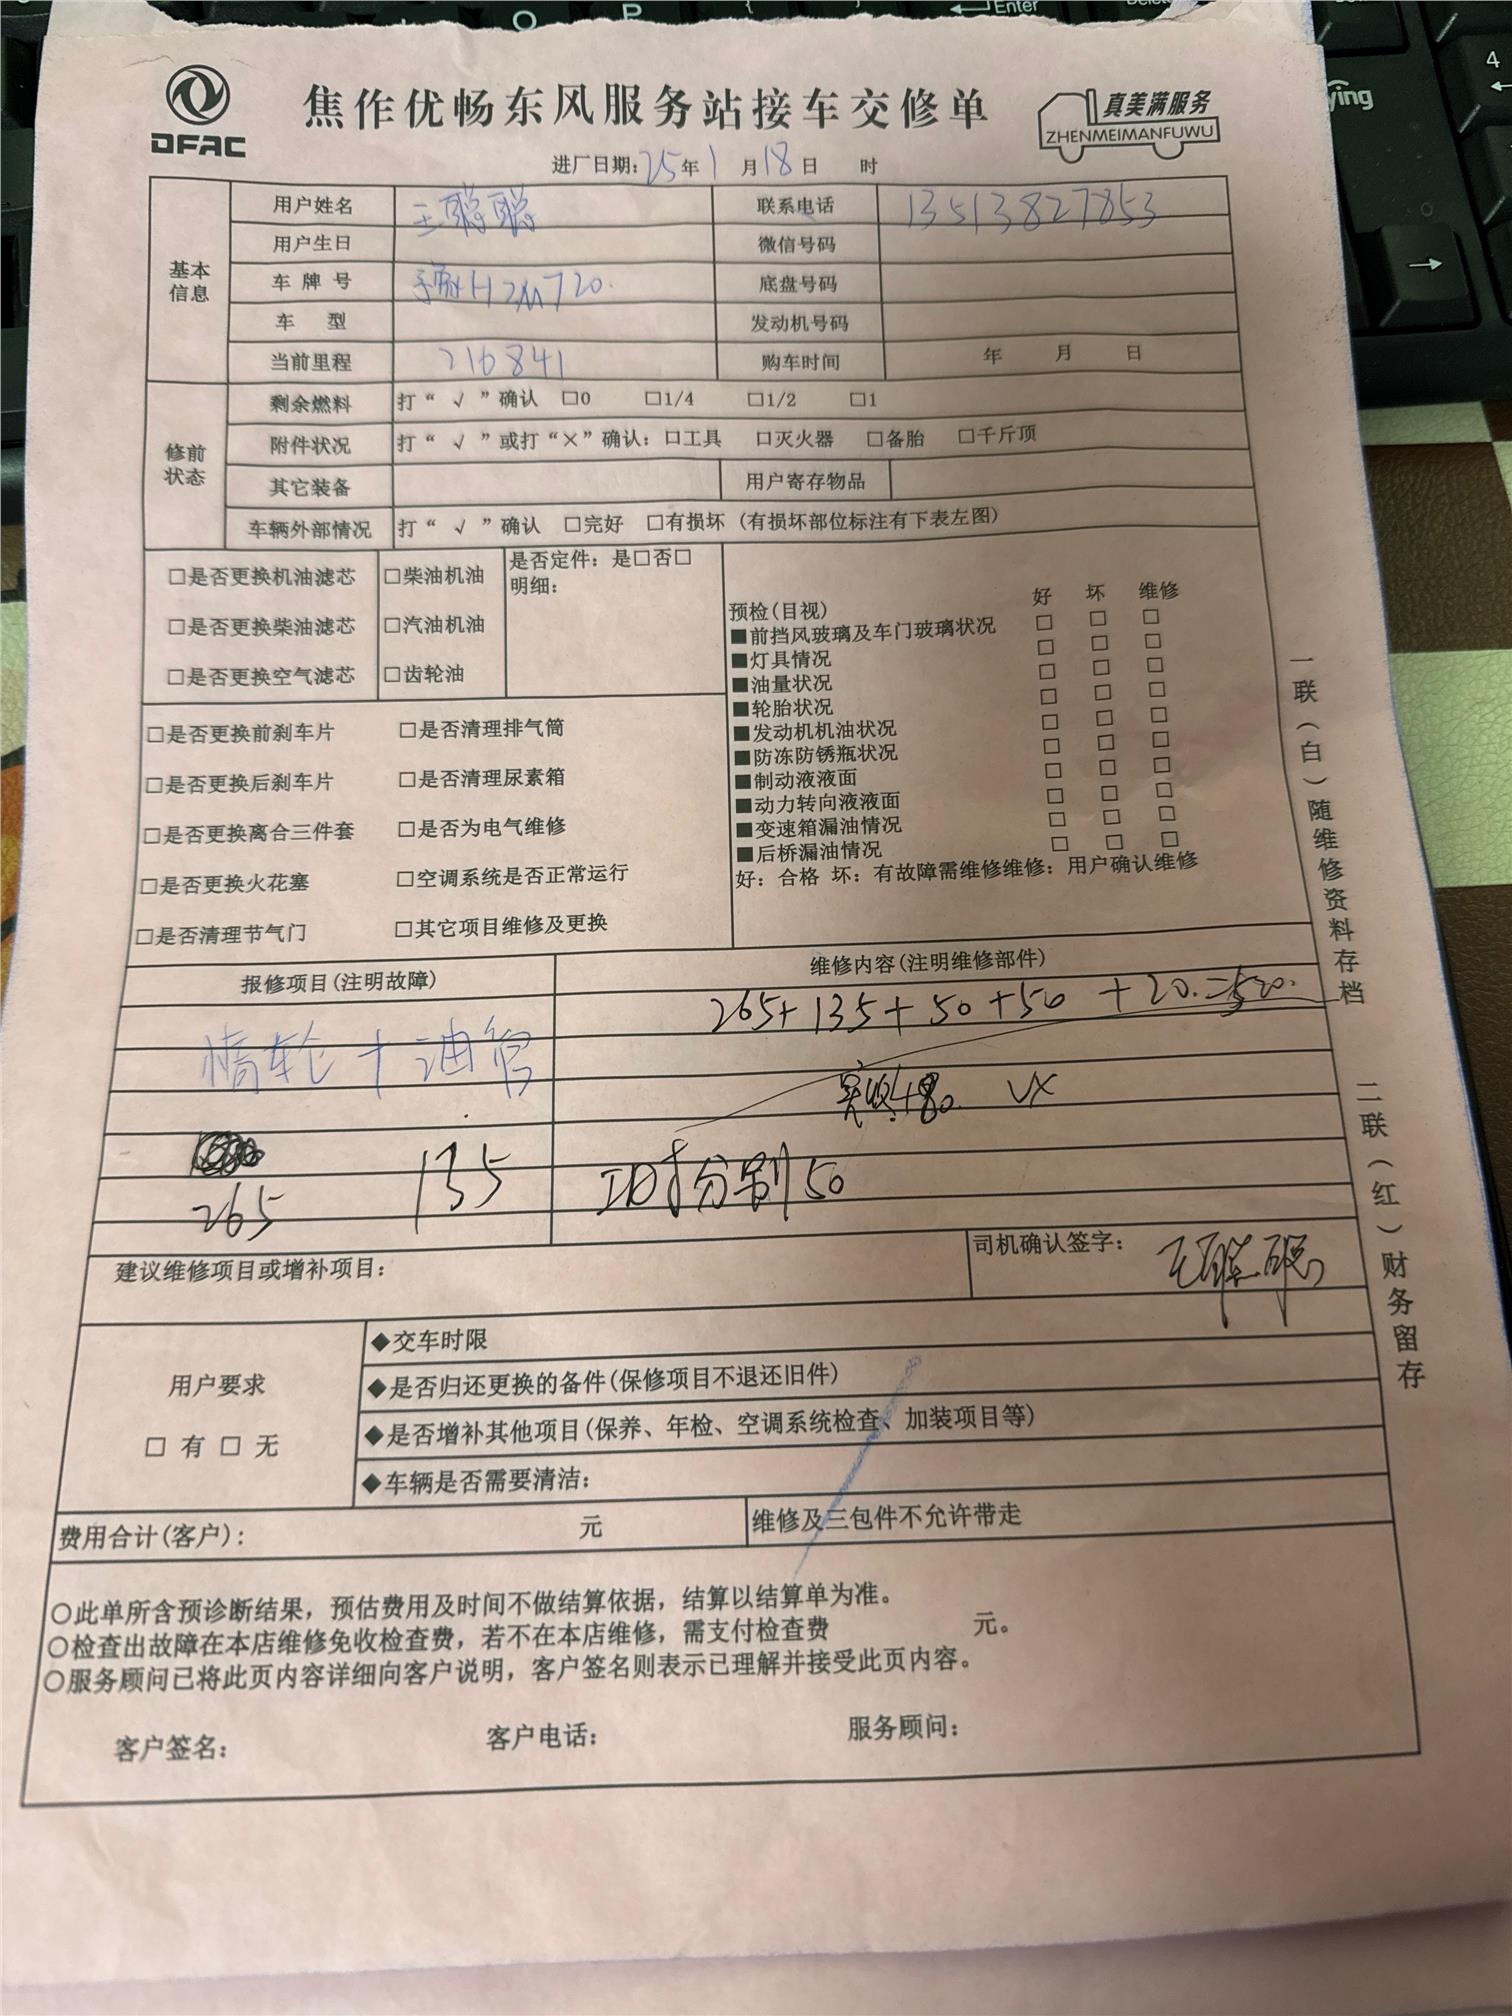 DFAC
焦作优畅东风服务站接车交修单
真美满服务
ZHENMEIMANFUWU
进厂日期:25年1月18日 时
基本信息
用户姓名 王聪聪 联系电话 13513827853
用户生日 微信号码
车牌号 豫H 底盘号码
车 型 发动机号码
当前里程 216841 购车时间 年 月 日
修前状态
剩余燃料 打“√”确认 □0 □1/4 □1/2 □1
附件状况 打“√”或打“×”确认：□工具 □灭火器 □备胎 □千斤顶
其它装备 用户寄存物品
车辆外部情况 打“√”确认 □完好 □有损坏 (有损坏部位标注有下表左图)
□是否更换机油滤芯 □柴油机油 是否定件：是□否□
明细：
□是否更换柴油滤芯 □汽油机油
□是否更换空气滤芯 □齿轮油
□是否更换前刹车片 □是否清理排气筒
□是否更换后刹车片 □是否清理尿素箱
□是否更换离合三件套 □是否为电气维修
□是否更换火花塞 □空调系统是否正常运行
□是否清理节气门 □其它项目维修及更换
预检(目视) 好 坏 维修
■前挡风玻璃及车门玻璃状况 □ □ □
■灯具情况 □ □ □
■油量状况 □ □ □
■轮胎状况 □ □ □
■发动机机油状况 □ □ □
■防冻防锈瓶状况 □ □ □
■制动液液面 □ □ □
■动力转向液液面 □ □ □
■变速箱漏油情况 □ □ □
■后桥漏油情况 □ □ □
好：合格 坏：有故障需维修维修：用户确认维修
报修项目(注明故障) 维修内容(注明维修部件)
265+135+50+50+20.=520.
惰轮+油管
实收480. VX
265 135 工时分别50
建议维修项目或增补项目： 司机确认签字： 王聪聪
用户要求
□ 有 □ 无
◆交车时限
◆是否归还更换的备件(保修项目不退还旧件)
◆是否增补其他项目(保养、年检、空调系统检查、加装项目等)
◆车辆是否需要清洁：
费用合计(客户)： 元 维修及三包件不允许带走
○此单所含预诊断结果，预估费用及时间不做结算依据，结算以结算单为准。
○检查出故障在本店维修免收检查费，若不在本店维修，需支付检查费 元。
○服务顾问已将此页内容详细向客户说明，客户签名则表示已理解并接受此页内容。
客户签名： 客户电话： 服务顾问：
一联(白)随维修资料存档
二联(红)财务留存